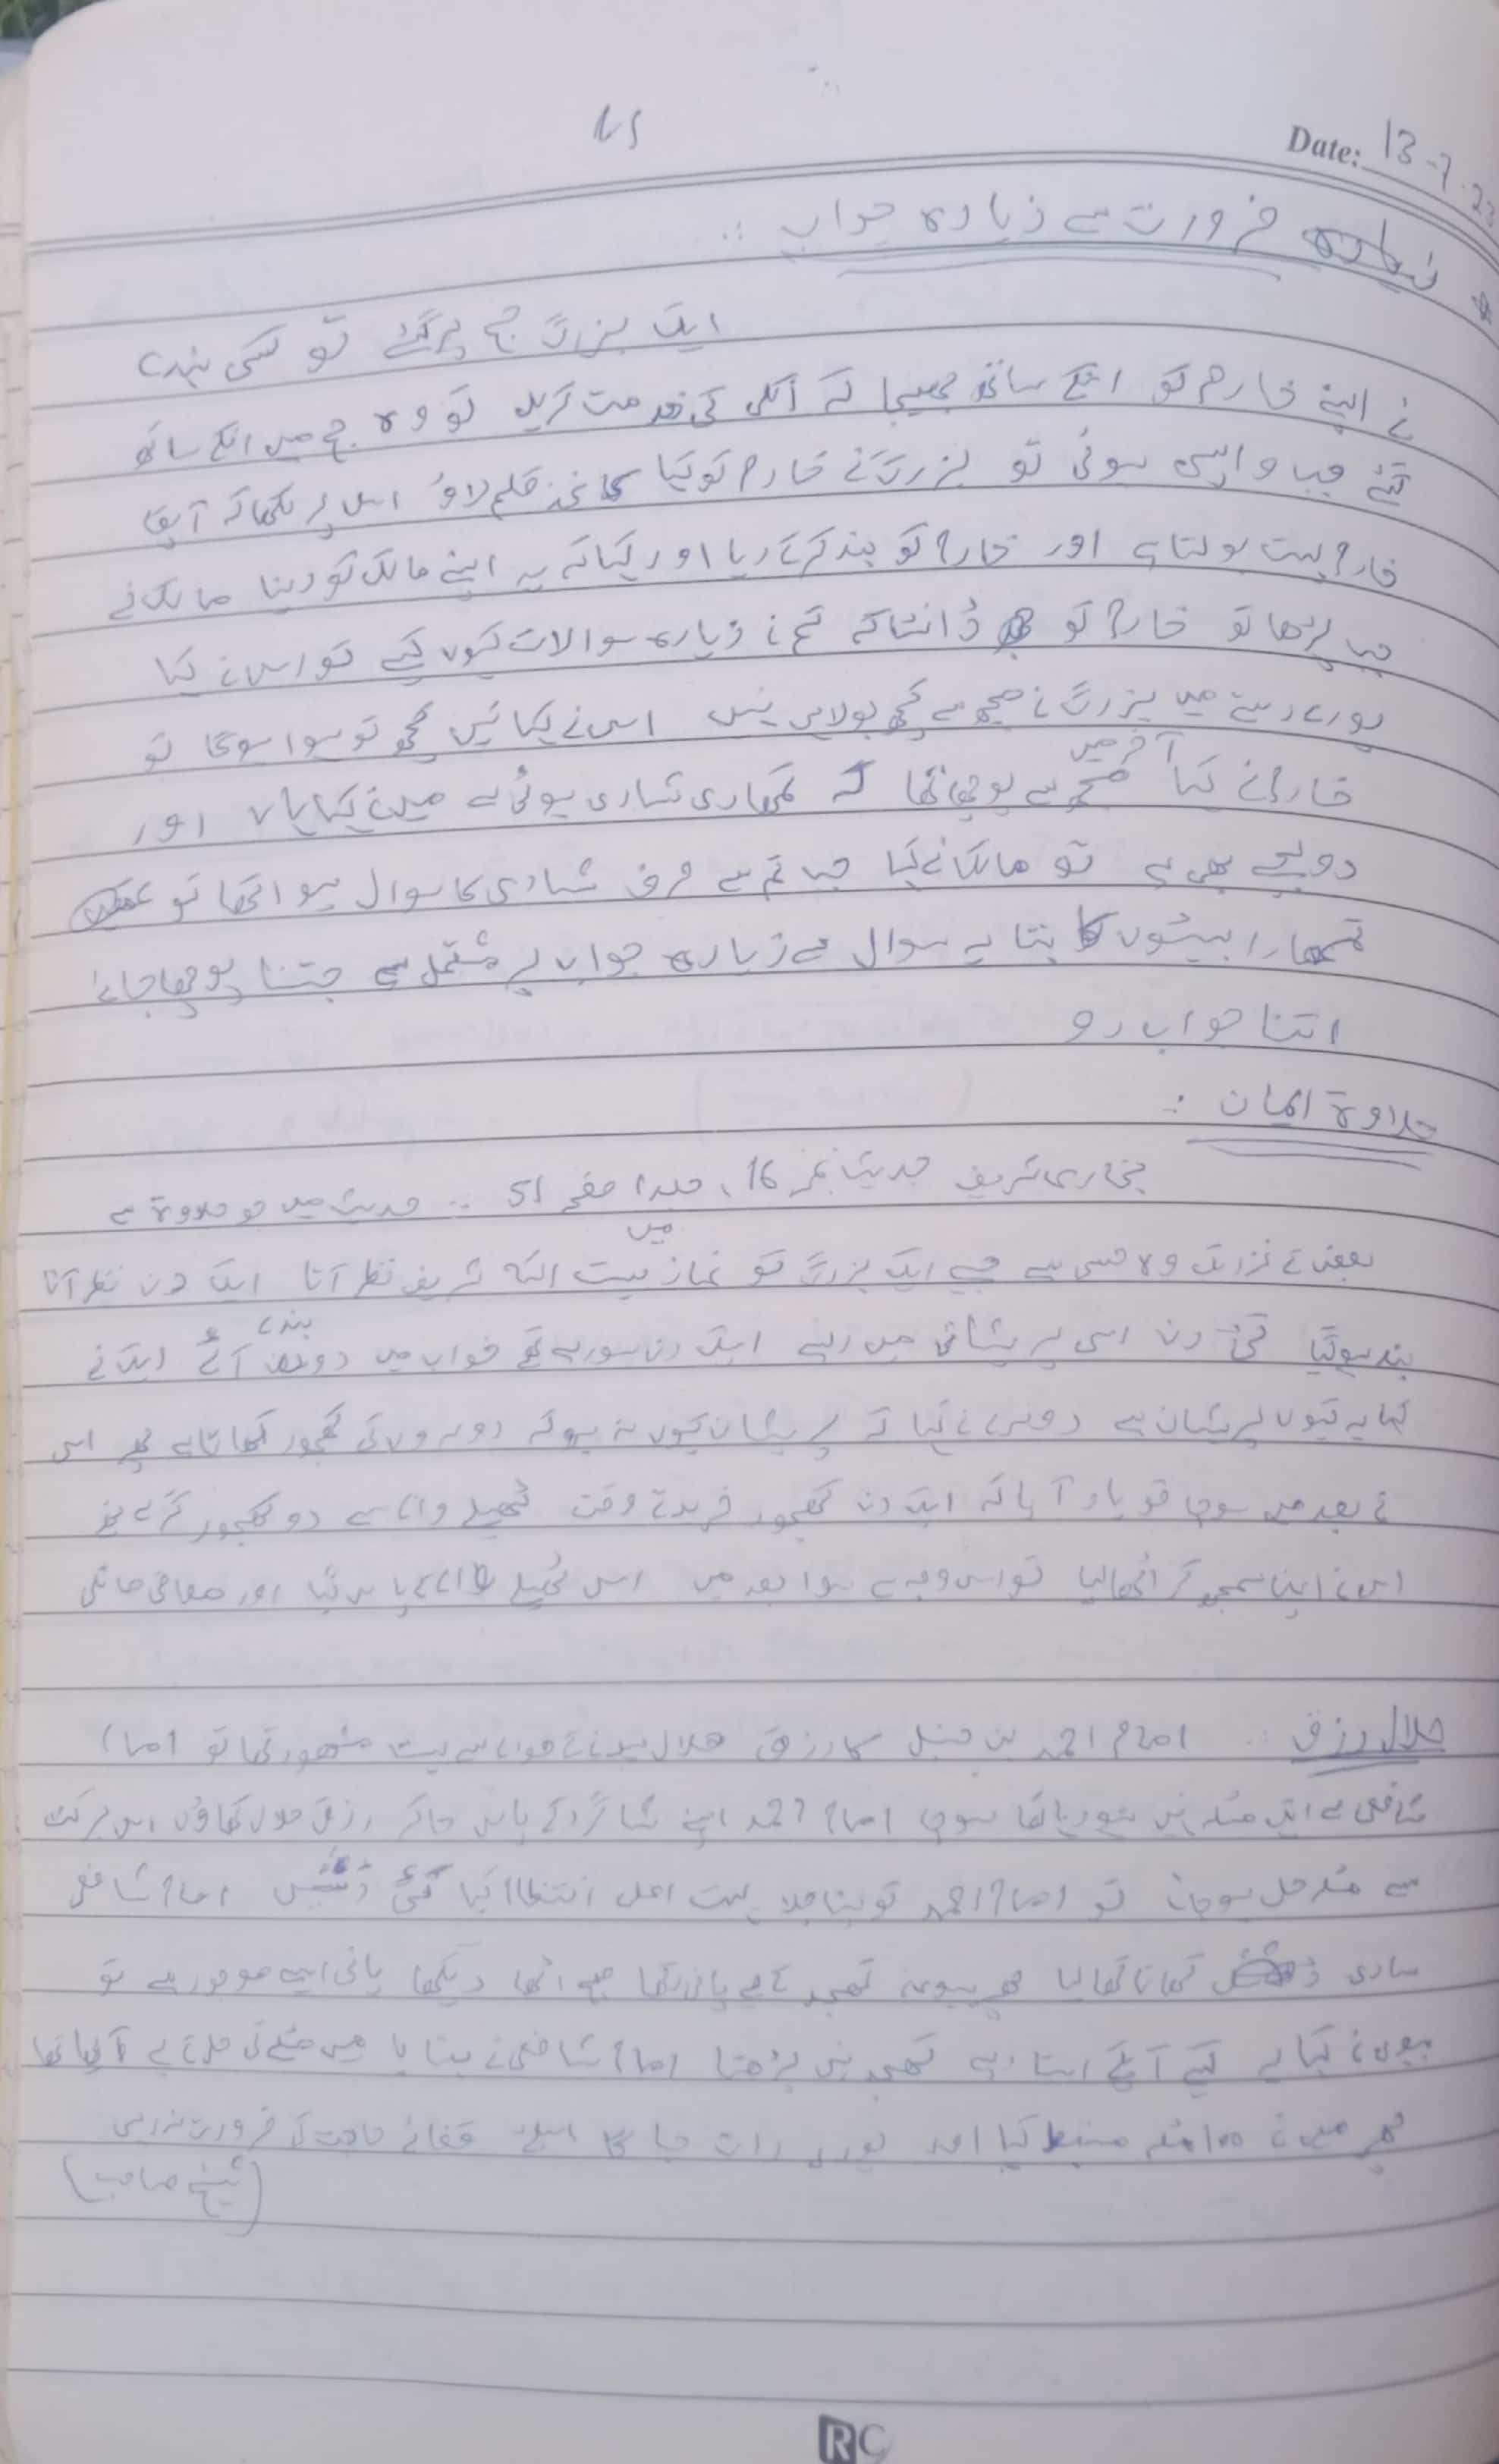 Date: 13-7-23
ضرورت سے زیادہ جواب ::
ایک بزرگ حج پر گئے تو کسی بندے
نے اپنے خادم کو انکے ساتھ بھیجا کہ انکی کی خدمت کریں تو وہ حج میں انکے ساتھ
گئے جب واپسی ہوئی تو بزرگ نے خادم کو کہا کاغذ قلم لاؤ اس پر لکھا کہ آپکا
خادم بہت بولتا ہے اور خادم کو بند کرکے دیا اور کہا کہ یہ اپنے مالک کو دینا مالک نے
جب پڑھا تو خادم کو ڈانٹا کہ تم نے زیادہ سوالات کیوں کیے تو اس نے کہا
پورے رستے میں بزرگ نے مجھ سے کچھ بولا ہی نہیں اس نے کہا نہیں کچھ تو ہوا ہوگا تو
خادم نے کہا آخر میں مجھ سے پوچھا تھا کہ تمھاری شادی ہوئی ہے میں نے کہا ہاں اور
دو بچے بھی ہے تو مالک نے کہا جب تم سے صرف شادی کا سوال ہوا تھا تو
تمھارا بیٹوں کا بتانا یہ سوال سے زیادہ جواب پر مشتمل ہے جتنا پوچھا جائے
اتنا جواب دو
حلاوۃ ایمان :
بخاری شریف حدیث نمبر 16، جلد 1 صفحہ 51 :: حدیث میں جو حلاوۃ ہے
بعض کے نزدیک وہ حسی ہے جیسے ایک بزرگ کو نماز میں بیت اللہ شریف نظر آتا ایک دن نظر آنا
بند ہوگیا کئی دن اسی پریشانی میں رہے ایک دن سو رہے تھے خواب میں دو بندے آئے ایک نے
کہا یہ کیوں پریشان ہے دوسرے نے کہا کہ پریشان کیوں نہ ہو کہ دوسروں کی کھجور کھاتا ہے پھر اس
نے بعد میں سوچا تو یاد آیا کہ ایک دن کھجور خریدتے وقت ٹھیلے والے سے دو کھجور گرے تھے
اس نے اپنا سمجھ کر اٹھا لیا تو اس وجہ سے ہوا بعد میں اس ٹھیلے والے کے پاس گیا اور معافی مانگی
حلال رزق :: امام احمد بن حنبل کا رزق حلال ہونے کے حوالے سے بہت مشھور تھا تو امام
شافعی سے ایک مسئلہ نہیں ہو رہا تھا سوچا امام احمد اپنے شاگرد کے پاس جا کے رزق حلال کھاؤں اس برکت
سے مسئلہ حل ہو جائے تو امام احمد کو پتا چلا بہت اعلی انتظام کیا کئی ڈشیں امام شافعی
ساری کھانا کھا لیا پھر بیوی نے تھجد کے لیے پانی رکھا صبح اٹھا دیکھا پانی ایسے موجود ہے تو
بیوی نے کہا یہ کیسے آپکے استاد ہے تھجد نہیں پڑھتا امام شافعی نے بتایا میں مسئلے کی حل کے لیے آیا تھا
پھر میں نے مسئلہ کیا اور پوری رات جاگا اسلئے قضائے حاجت کی ضرورت نہ رہی
(شیخ صاحب)
RC